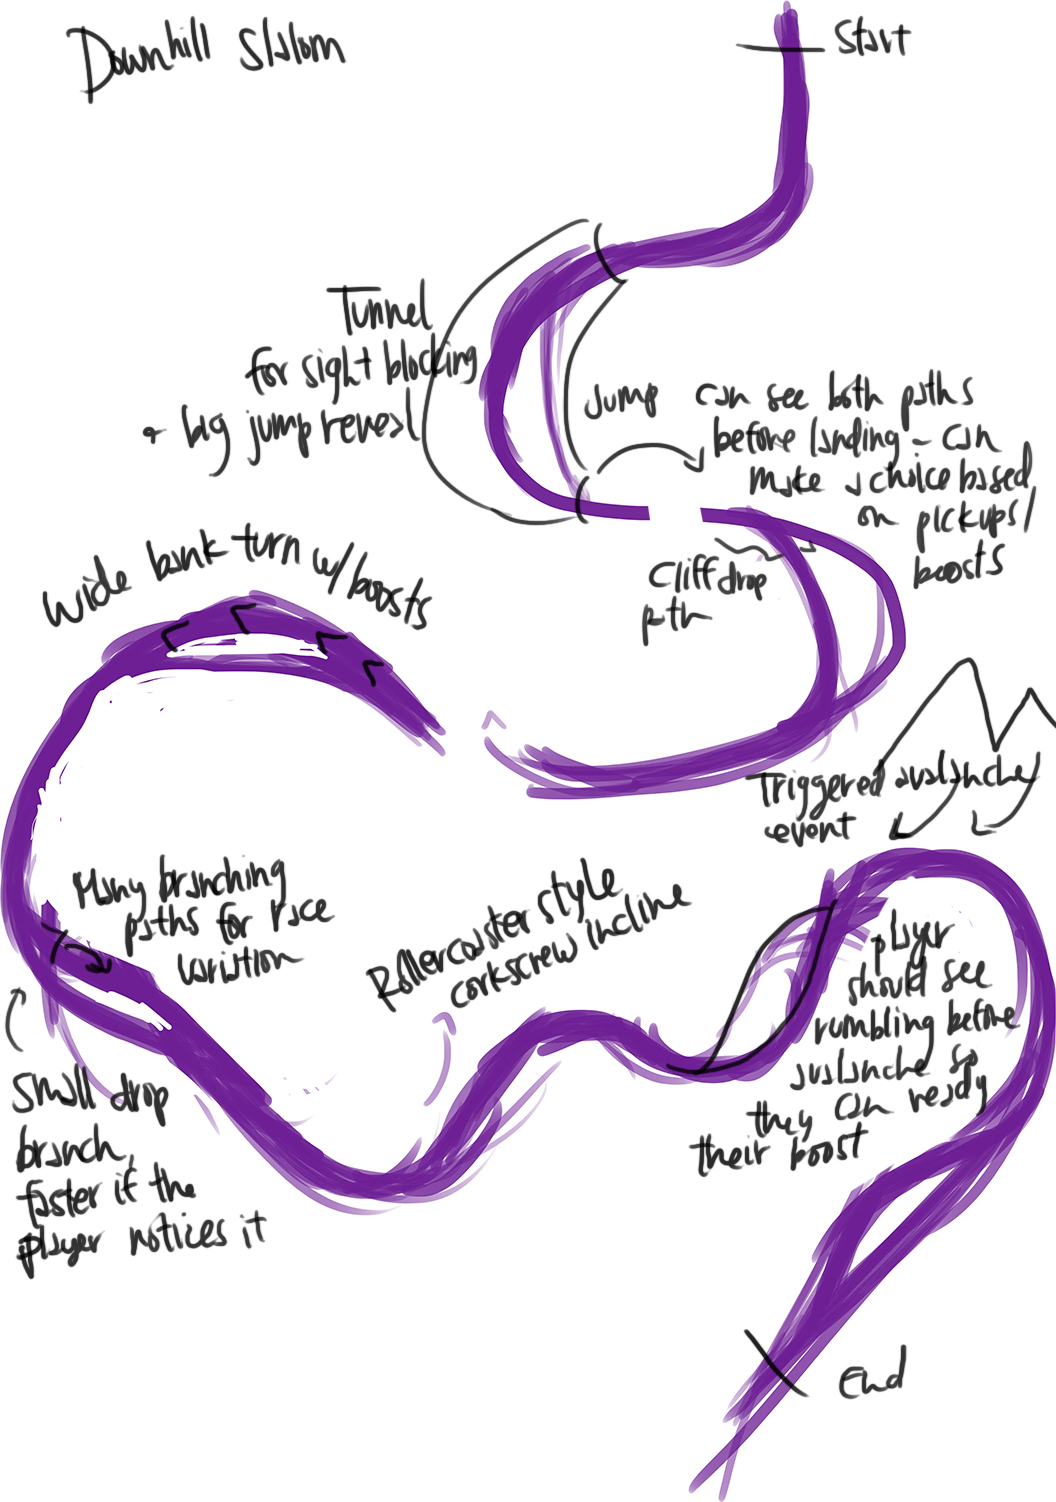 Downhill Slalom
Start
Tunnel
for sight blocking
+ big jump reveal
Jump
can see both paths
before landing - can
make a choice based
on pickups/
boosts
Cliff drop
path
Wide bank turn w/ boosts
Triggered avalanche
event
Many branching
paths for race
variation
Rollercoaster style
corkscrew incline
player
should see
rumbling before
avalanche so
they can ready
their boost
Small drop
branch,
faster if the
player notices it
End